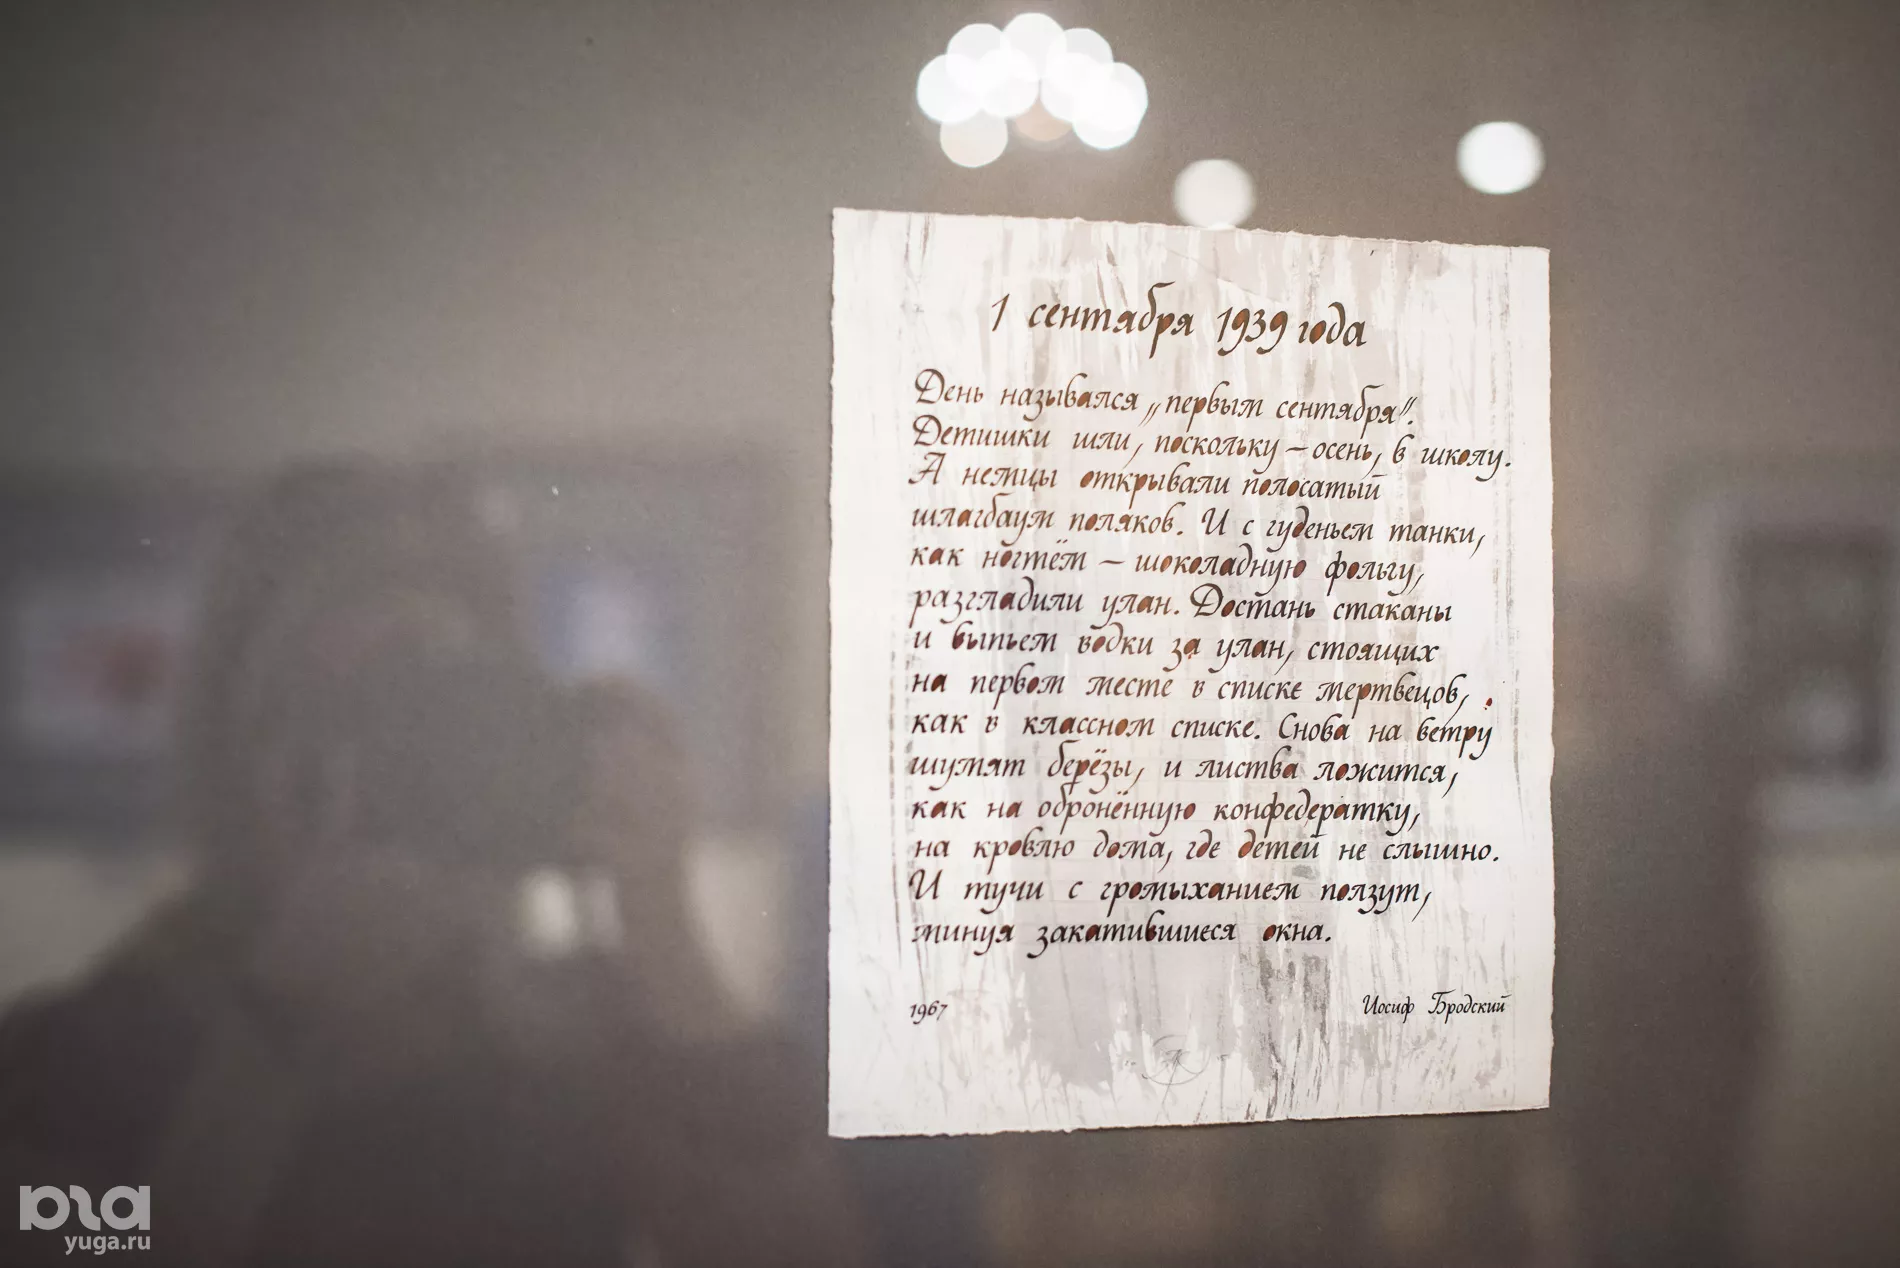 1 сентября 1939 года
День назывался „первым сентября".
Детишки шли, поскольку – осень, в школу.
А немцы открывали полосатый
шлагбаум поляков. И с гуденьем танки,
как ногтём – шоколадную фольгу,
разгладили улан. Достань стаканы
и выпьем водки за улан, стоящих
на первом месте в списке мертвецов,
как в классном списке. Снова на ветру
шумят берёзы, и листва ложится,
как на обронённую конфедератку,
на кровлю дома, где детей не слышно.
И тучи с громыханием ползут,
минуя закатившиеся окна.
1967 Иосиф Бродский
yuga.ru